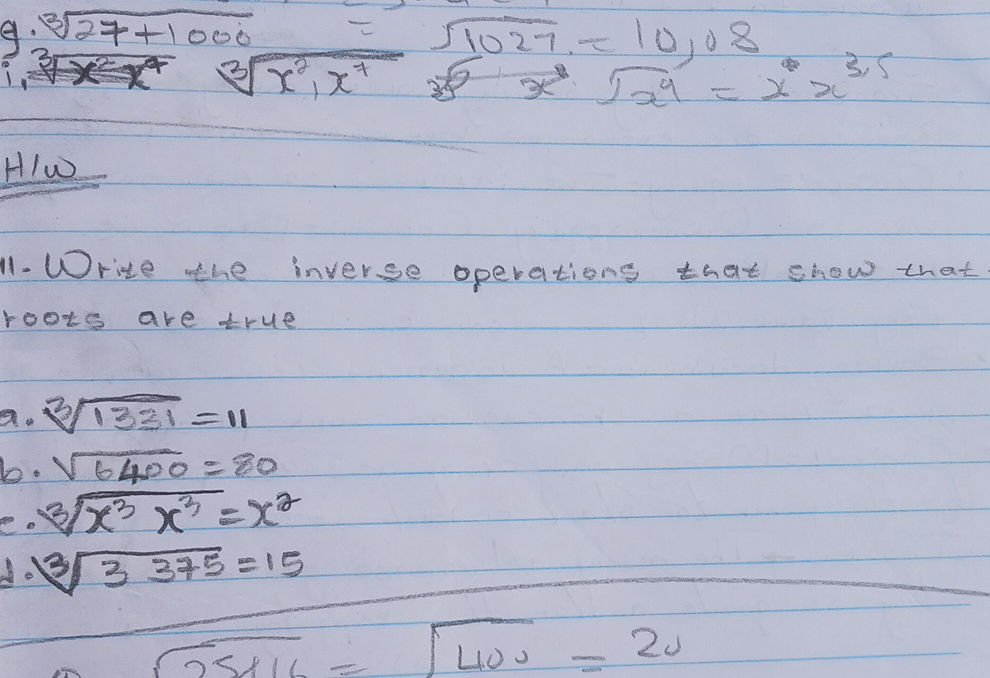 g. ∛27+1000 = √1027. = 10,08
i, ∛x², x⁷ √x⁹ = x^3,5
H/W
11. Write the inverse operations that show that
roots are true
a. ∛1331 = 11
b. √6400 = 80
c. ∛x³ x³ = x²
d. ∛3 375 = 15
= √400 = 20